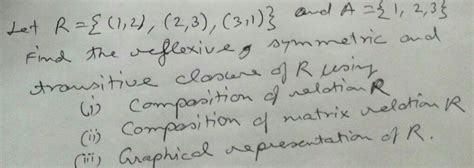 Let R = { (1,2), (2,3), (3,1)} and A = {1, 2,3}
Find the reflexive, symmetric and
transitive closure of R using
(i) Composition of relation R
(ii) Composition of matrix relation R
(iii) Graphical representation of R.